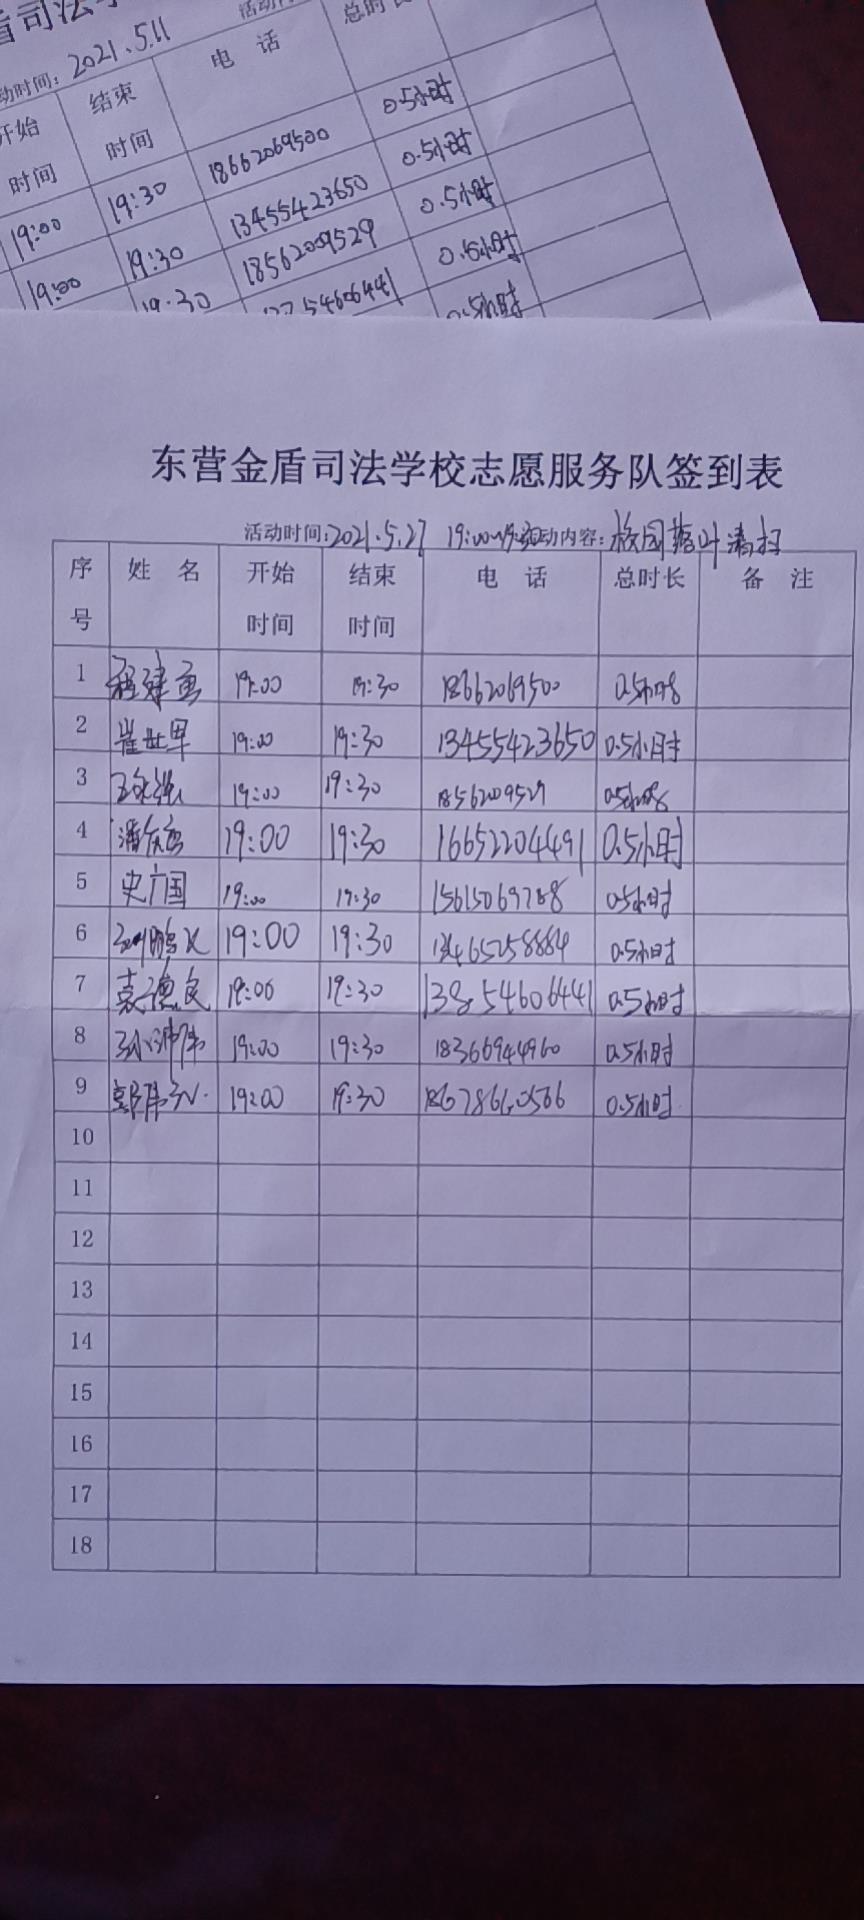 盾司法学
动时间：2021.5.11
活动内
开始 时间
结束 时间
电 话
总时长
19:00 19:30 18662069500 0.5小时
19:00 19:30 13455423650 0.5小时
19:30 18562009529 0.5小时
54606441 0.5小时
0.5小时
东营金盾司法学校志愿服务队签到表
活动时间：2021.5.27 19:00 活动内容：校园落叶清扫
序号 姓 名 开始时间 结束时间 电 话 总时长 备 注
1 程建 19:00 19:30 18662069500 0.5小时
2 崔世军 19:00 19:30 13455423650 0.5小时
3 19:00 19:30 0.5小时
4 潘 19:00 19:30 16652204491 0.5小时
5 史广国 19:00 19:30 15615069788 0.5小时
6 刘鹏飞 19:00 19:30 13465258884 0.5小时
7 袁德良 19:00 19:30 13854606441 0.5小时
8 孙沛伟 19:00 19:30 18366944960 0.5小时
9 郭伟 19:00 19:30 18678660566 0.5小时
10
11
12
13
14
15
16
17
18